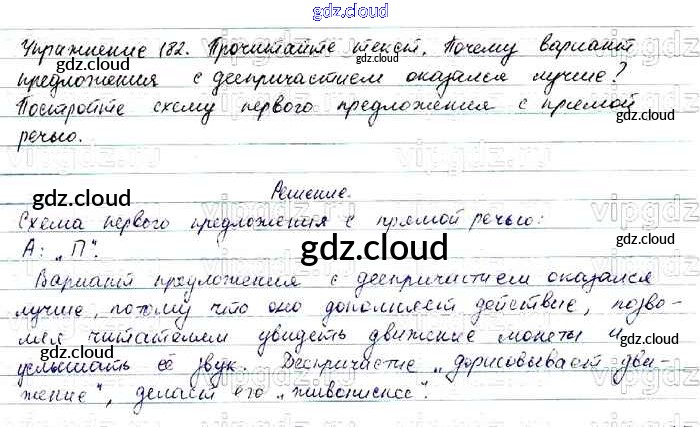 gdz.cloud
Упражнение 182. Прочитайте текст. Почему вариант
предложения с деепричастием оказался лучше?
Постройте схему первого предложения с прямой
речью.
gdz.cloud
Решение.
gdz.cloud gdz.cloud
Схема первого предложения с прямой речью:
А: „П“.
gdz.cloud
Вариант предложения с деепричастием оказался
лучше, потому что оно дополняет действие, позво-
ляя читателям увидеть движение монеты и
услышать её звук. Деепричастие „дорисовывает дви-
жение“, делает его „живописнее“.
gdz.cloud gdz.cloud